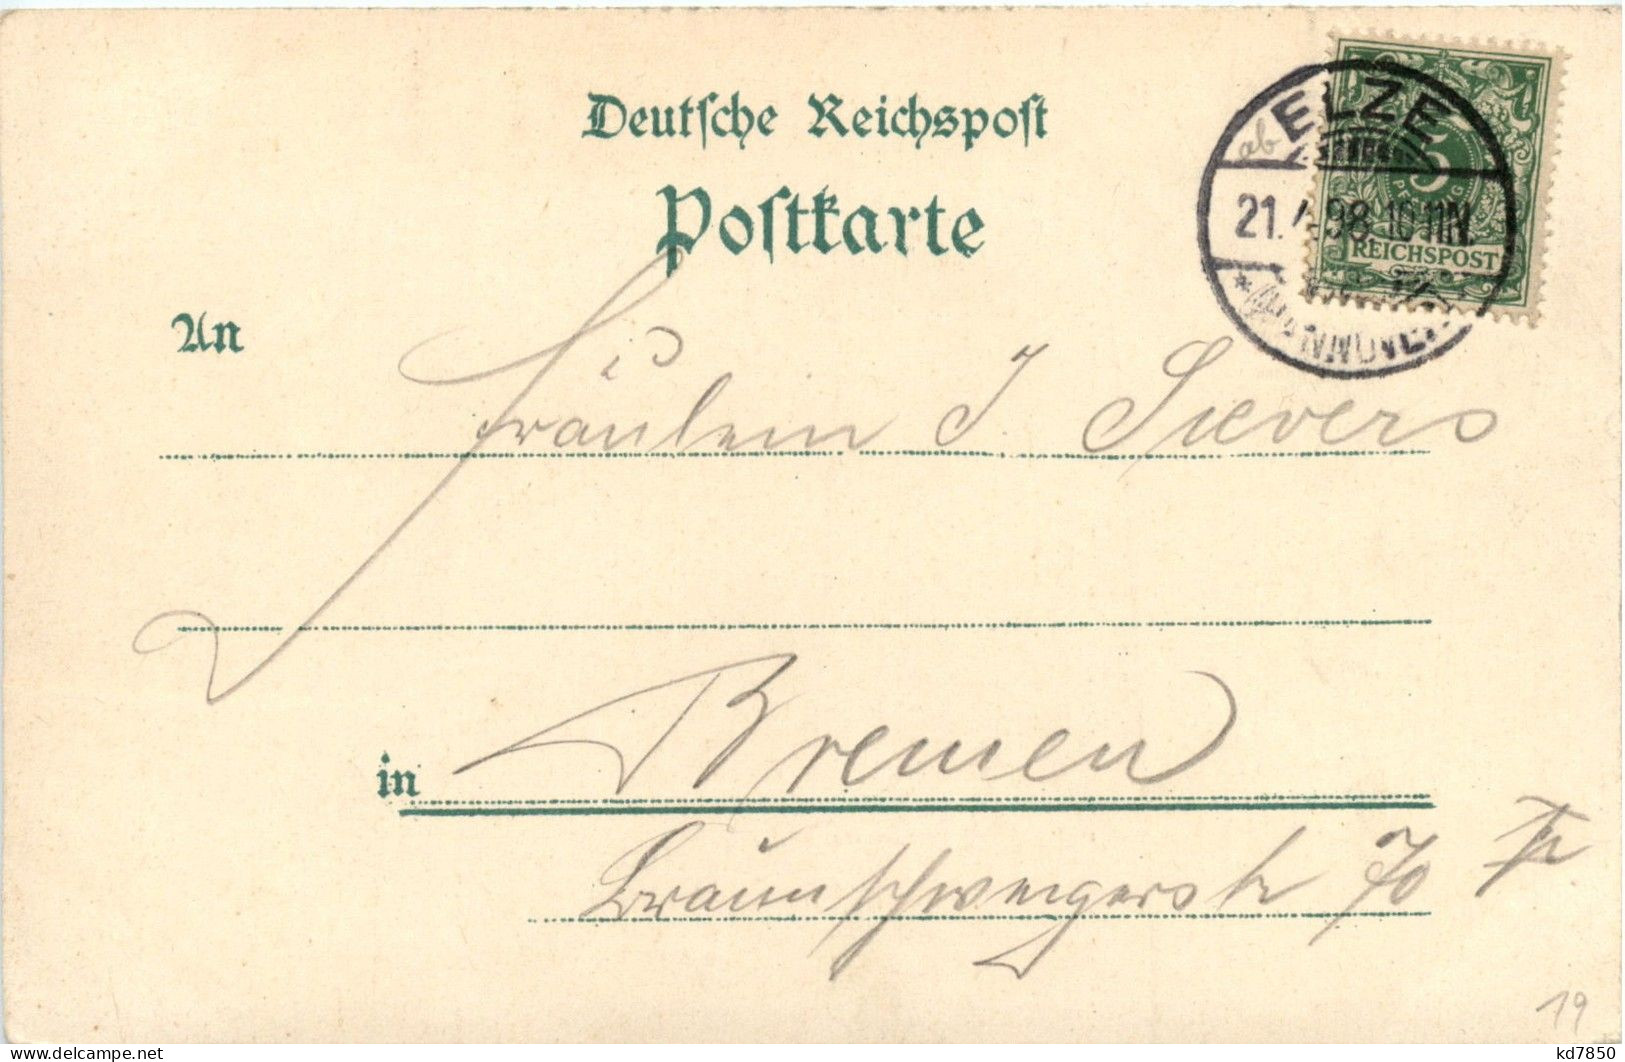 Deutsche Reichspost
Postkarte
ab ELZE
5
PFENNIG
21. 4. 98. 10-11N.
REICHSPOST
* (HANNOVER)
An
Fräulein J. Sievers
in Bremen
Braunschweigerstr 70
19
kd7850